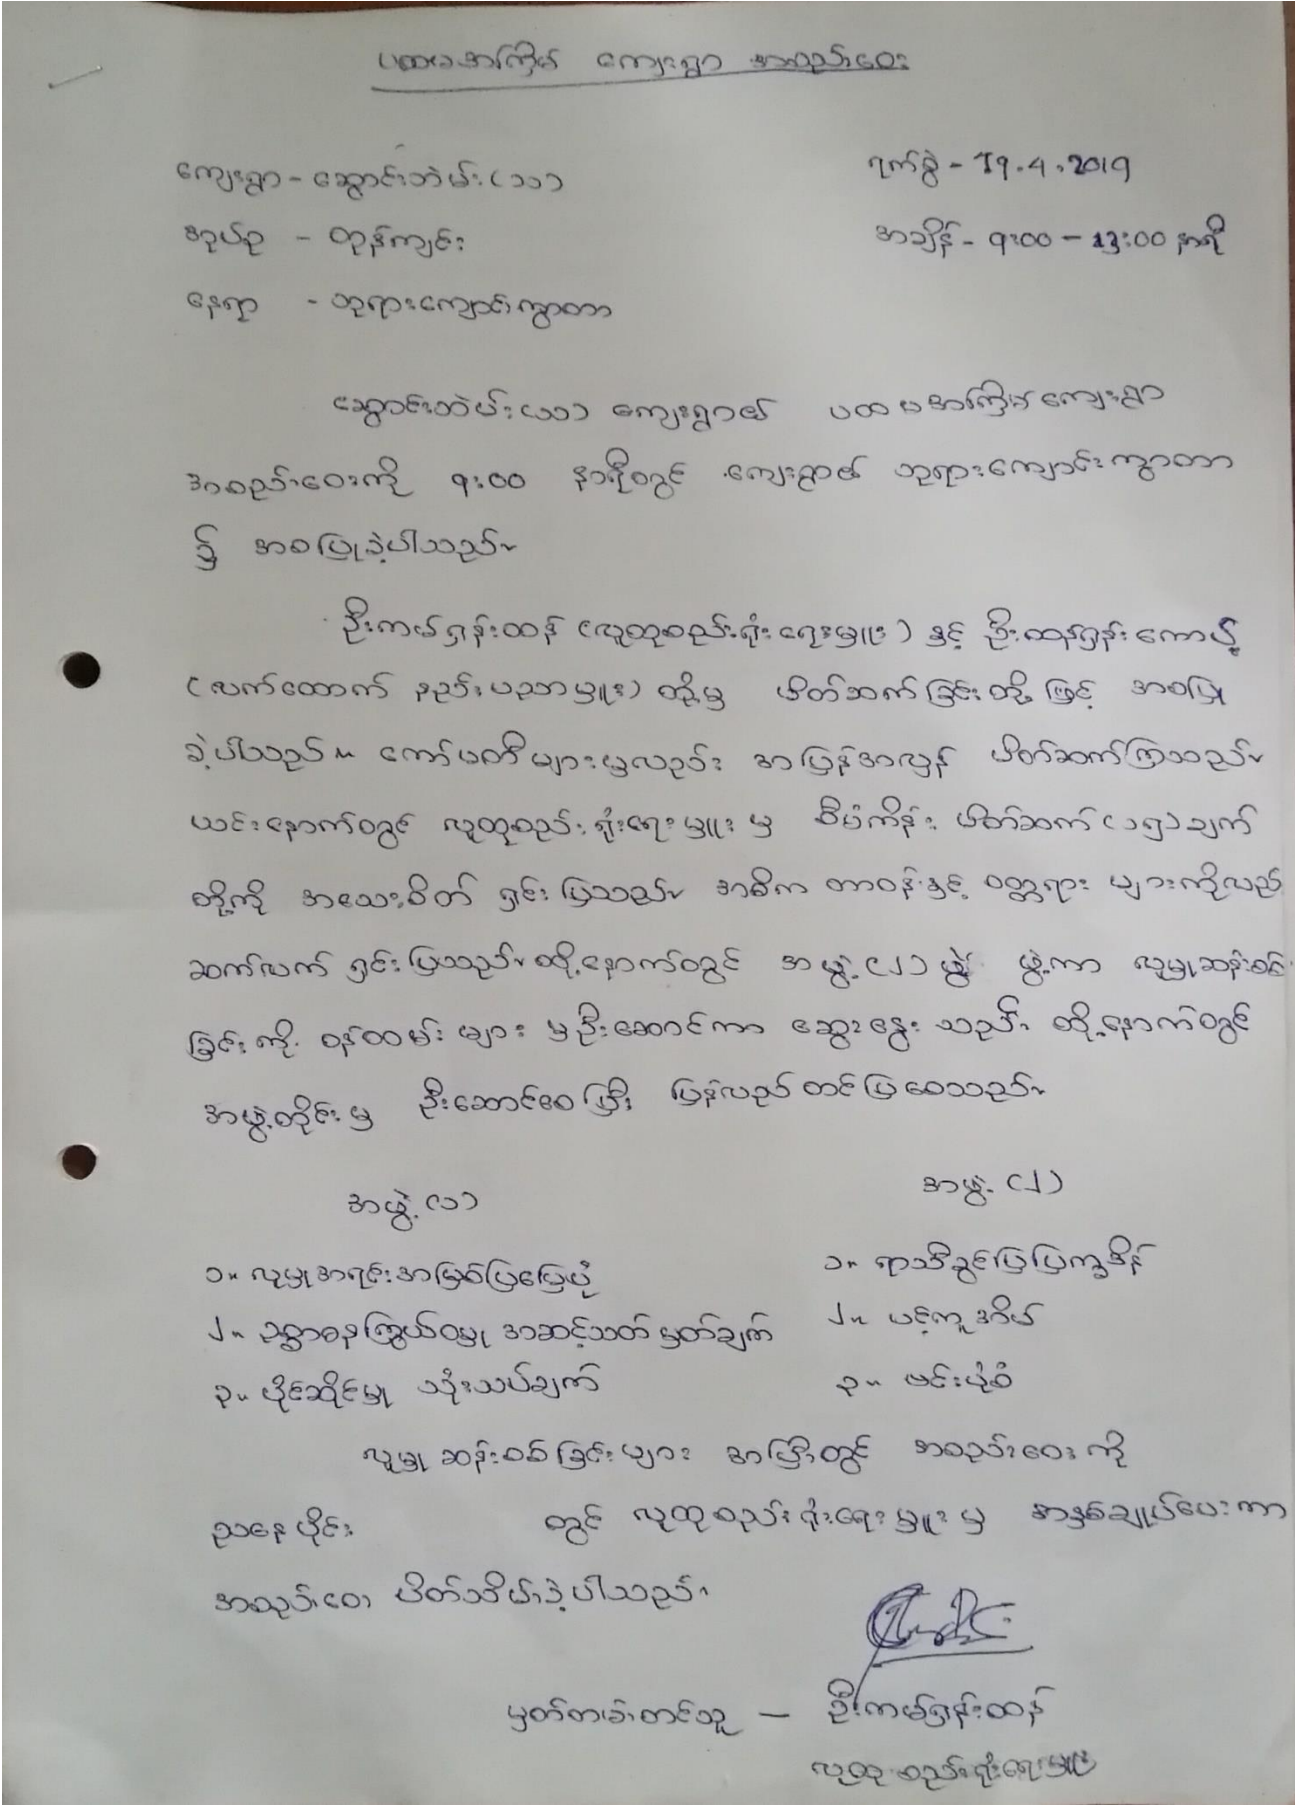 ပထမအကြိမ် ကျေးရွာ အစည်းအဝေး
ကျေးရွာ - ဆွောင်းဘဲမ်း (၁၁)
ရက်စွဲ - 19.4.2019
အုပ်စု - တုန်ကျင်း
အချိန် - ၉:၀၀ - 13:00 နာရီ
နေရာ - ဘုရားကျောင်းကွာတာ
ဆွောင်းဘဲမ်း (၁၁) ကျေးရွာ၏ ပထမအကြိမ်ကျေးရွာ
အစည်းဝေးကို ၉:၀၀ နာရီတွင် ကျေးရွာ၏ ဘုရားကျောင်းကွာတာ
၌ အစပြုခဲ့ပါသည်။
ဦးကမ်ရှန်းထန် (လူထုစည်းရုံးရေးမှူး) နှင့် ဦးထန်ရှန်းကောပ့်
(လက်ထောက် နည်းပညာမှူး) တို့မှ မိတ်ဆက်ခြင်းတို့ဖြင့် အစပြု
ခဲ့ပါသည်။ ကော်မတီများမှလည်း အပြန်အလှန် မိတ်ဆက်ကြသည်။
ယင်းနောက်တွင် လူထုစည်းရုံးရေးမှူးမှ စီမံကိန်း မိတ်ဆက် (၁၅) ချက်
တို့ကို အသေးစိတ် ရှင်းပြသည်။ အဓိက တာဝန်နှင့် ဝတ္တရားများကိုလည်
ဆက်လက် ရှင်းပြသည်။ ထို့နောက်တွင် အဖွဲ့ (၂) ဖွဲ့ ဖွဲ့ကာ လူမှုဆန်းစစ်
ခြင်းကို ဝန်ထမ်းများမှဦးဆောင်ကာ ဆွေးနွေးသည်။ ထို့နောက်တွင်
အဖွဲ့တိုင်းမှ ဦးဆောင်စေပြီး ပြန်လည်တင်ပြစေသည်။
အဖွဲ့ (၁)
အဖွဲ့ (၂)
၁။ လူမှုအရင်းအမြစ်ပြမြေပုံ
၁။ ရာသီခွင်ပြပြက္ခဒိန်
၂။ ဥစ္စာဓနကြွယ်ဝမှု အဆင့်သတ်မှတ်ချက်
၂။ ပင့်ကူအိမ်
၃။ ပိုင်ဆိုင်မှု သုံးသပ်ချက်
၃။ ဗင်းပုံစံ
လူမှုဆန်းစစ်ခြင်းများ အပြီးတွင် အစည်းဝေးကို
ညနေပိုင်း တွင် လူထုစည်းရုံးရေးမှူးမှ အနှစ်ချုပ်ပေးကာ
အစည်းဝေး ပိတ်သိမ်းခဲ့ပါသည်။
မှတ်တမ်းတင်သူ — ဦးကမ်ရှန်းထန်
လူထုစည်းရုံးရေးမှူး